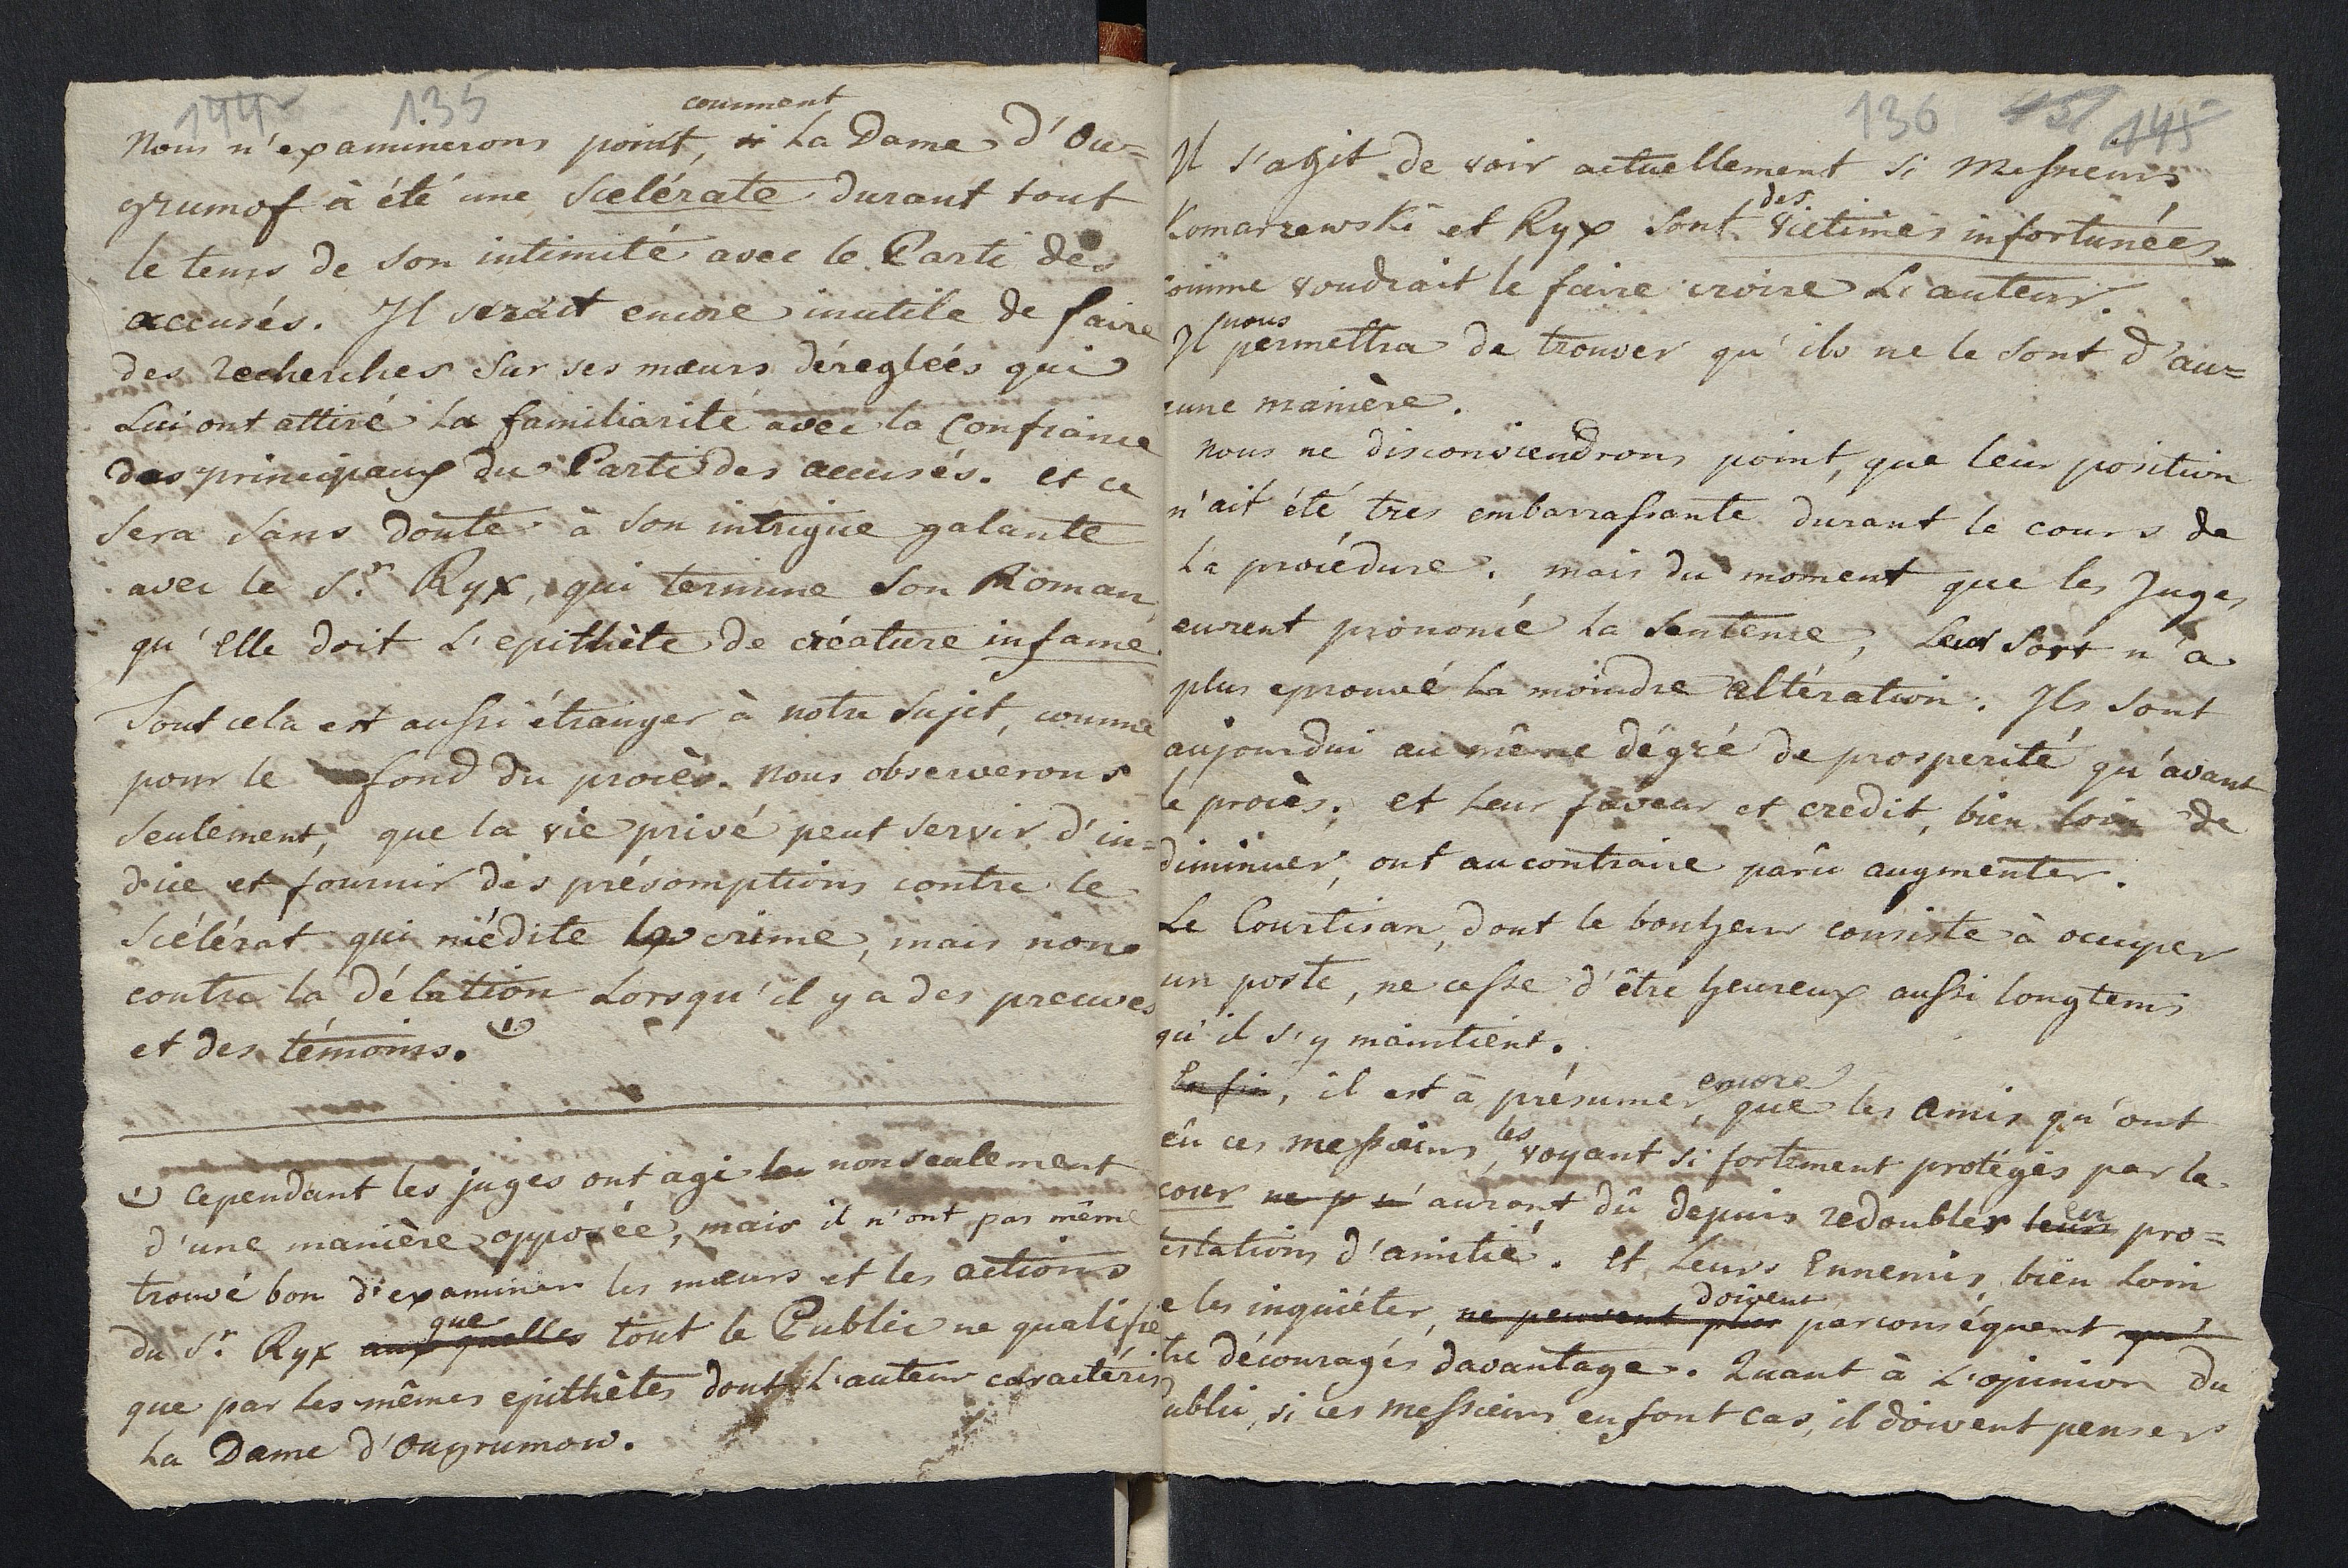 144 135
comment
Nous n'examinerons point, si La Dame d'Ou=
grumof à été une scelérate durant tout
le tems de son intimité avec le Parti des
accusés. Il serait encore inutile de faire
des recherches sur ses mœurs déreglées qui
Lui ont attiré la familiarité avec la Confiance
des principaux du Parti des accusés. et ce
sera sans doute à son intrigue galante
avec le Sr. Ryx, qui termine son Roman,
qu'elle doit L'epithète de créature infame.
Tout cela est aussi étranger à notre sujet, comme
pour le fond du procès. Nous observerons
seulement, que la vie privé peut servir d'in=
dice et fournir des présomptions contre le
scélérat qui médite le crime, mais non
contre la délation Lorsqu'il y a des preuves
et des témoins. 1)
1) Cependant les juges ont agi non seulement
d'une manière opposée, mais il n'ont pas même
trouvé bon d'examiner les mœurs et les actions
que
du Sr. Ryx aux quelles tout le Public ne qualifie
que par les mêmes epithètes dont L'auteur caractéris
La Dame d'Ougrumow.
136 145
Il s'agit de voir actuellement si Messieurs
des
Komarzewski et Ryx sont victimes infortunées
comme voudrait le faire croire L'auteur.
nous
Il permettra de trouver qu'ils ne le sont d'au=
cune manière.
Nous ne disconviendrons point, que leur position
n'ait été tres embarrassante durant le cours de
La procédure. mais du moment que les Juges
eurent prononcé la Sentence, Leur sort n'a
plus eprouvé la moindre altération. Ils sont
aujourdui au même dégré de prosperité qu'avant
le procès; et Leur faveur et credit, bien loin de
diminuer, ont au contraire parû augmenter.
Le Courtisan, dont le bonheur consiste à occuper
un poste, ne cesse d'être heureux aussi longtems
qu'il s'y maintient.
encore
Enfin, il est à présumer, que les amis qu'ont
les
eû ces messieurs, voyant si fortement protégés par la
cour ne p n' auront dû depuis redoubler leurs pro=
en
testations d'amitié. et Leurs Ennemis, bien loin
doivent
e les inquiéter, ne peuvent plus parconséquent qu'
tre découragés davantage. Quant à L'opinion du
ublic, si ces messieurs en font cas, il doivent penser